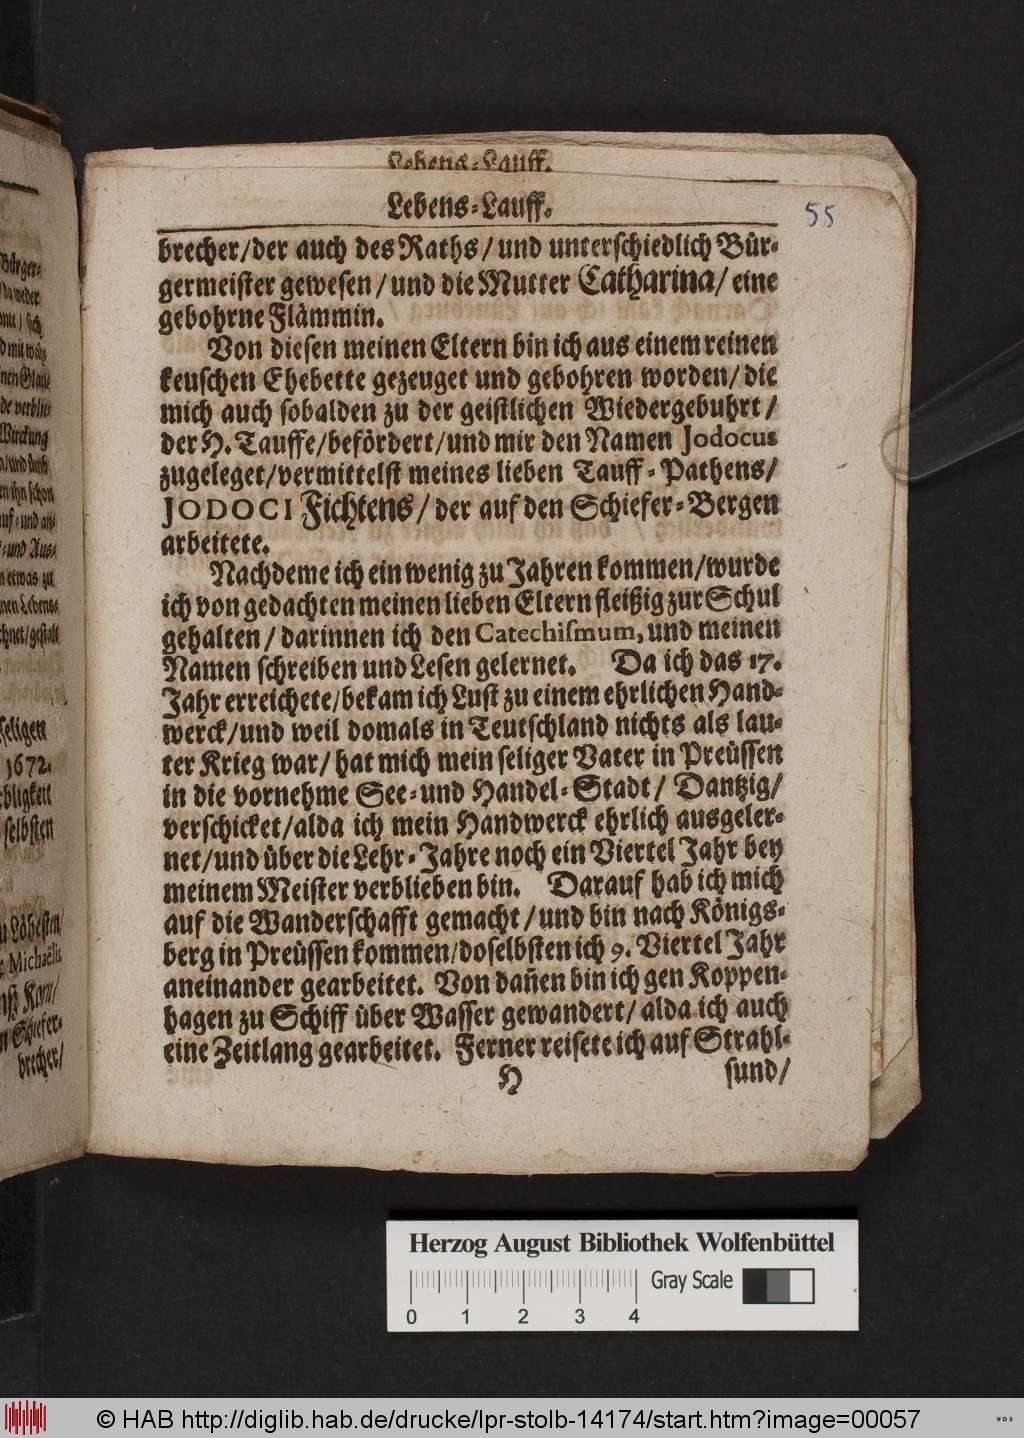 Lebens-Lauff.
Lebens-Lauff.
55
brecher/der auch des Raths/und unterschiedlich Bür-
germeister gewesen/und die Mutter Catharina/eine
gebohrne Flämmin.
Von diesen meinen Eltern bin ich aus einem reinen
keuschen Ehebette gezeuget und gebohren worden/die
mich auch sobalden zu der geistlichen Wiedergebuhrt/
der H. Tauffe/befördert/und mir den Namen Jodocus
zugeleget/vermittelst meines lieben Tauff-Pathens/
JODOCI Fichtens/der auf den Schiefer-Bergen
arbeitete.
Nachdeme ich ein wenig zu Jahren kommen/wurde
ich von gedachten meinen lieben Eltern fleißig zur Schul
gehalten/darinnen ich den Catechiſmum, und meinen
Namen schreiben und Lesen gelernet. Da ich das 17.
Jahr erreichete/bekam ich Lust zu einem ehrlichen Hand-
werck/und weil domals in Teutschland nichts als lau-
ter Krieg war/hat mich mein seliger Vater in Preüssen
in die vornehme See-und Handel-Stadt/Dantzig/
verschicket/alda ich mein Handwerck ehrlich ausgeler-
net/und über die Lehr-Jahre noch ein Viertel Jahr bey
meinem Meister verblieben bin. Darauf hab ich mich
auf die Wanderschafft gemacht/und bin nach Königs-
berg in Preüssen kommen/doselbsten ich 9. Viertel Jahr
aneinander gearbeitet. Von dañen bin ich gen Koppen-
hagen zu Schiff über Wasser gewandert/alda ich auch
eine Zeitlang gearbeitet. Ferner reisete ich auf Strahl-
H sund/
Bürger-
seligen
1672.
selbsten
Michaëlis
Schiefer-
brecher/
Herzog August Bibliothek Wolfenbüttel
Gray Scale
0 1 2 3 4
© HAB http://diglib.hab.de/drucke/lpr-stolb-14174/start.htm?image=00057